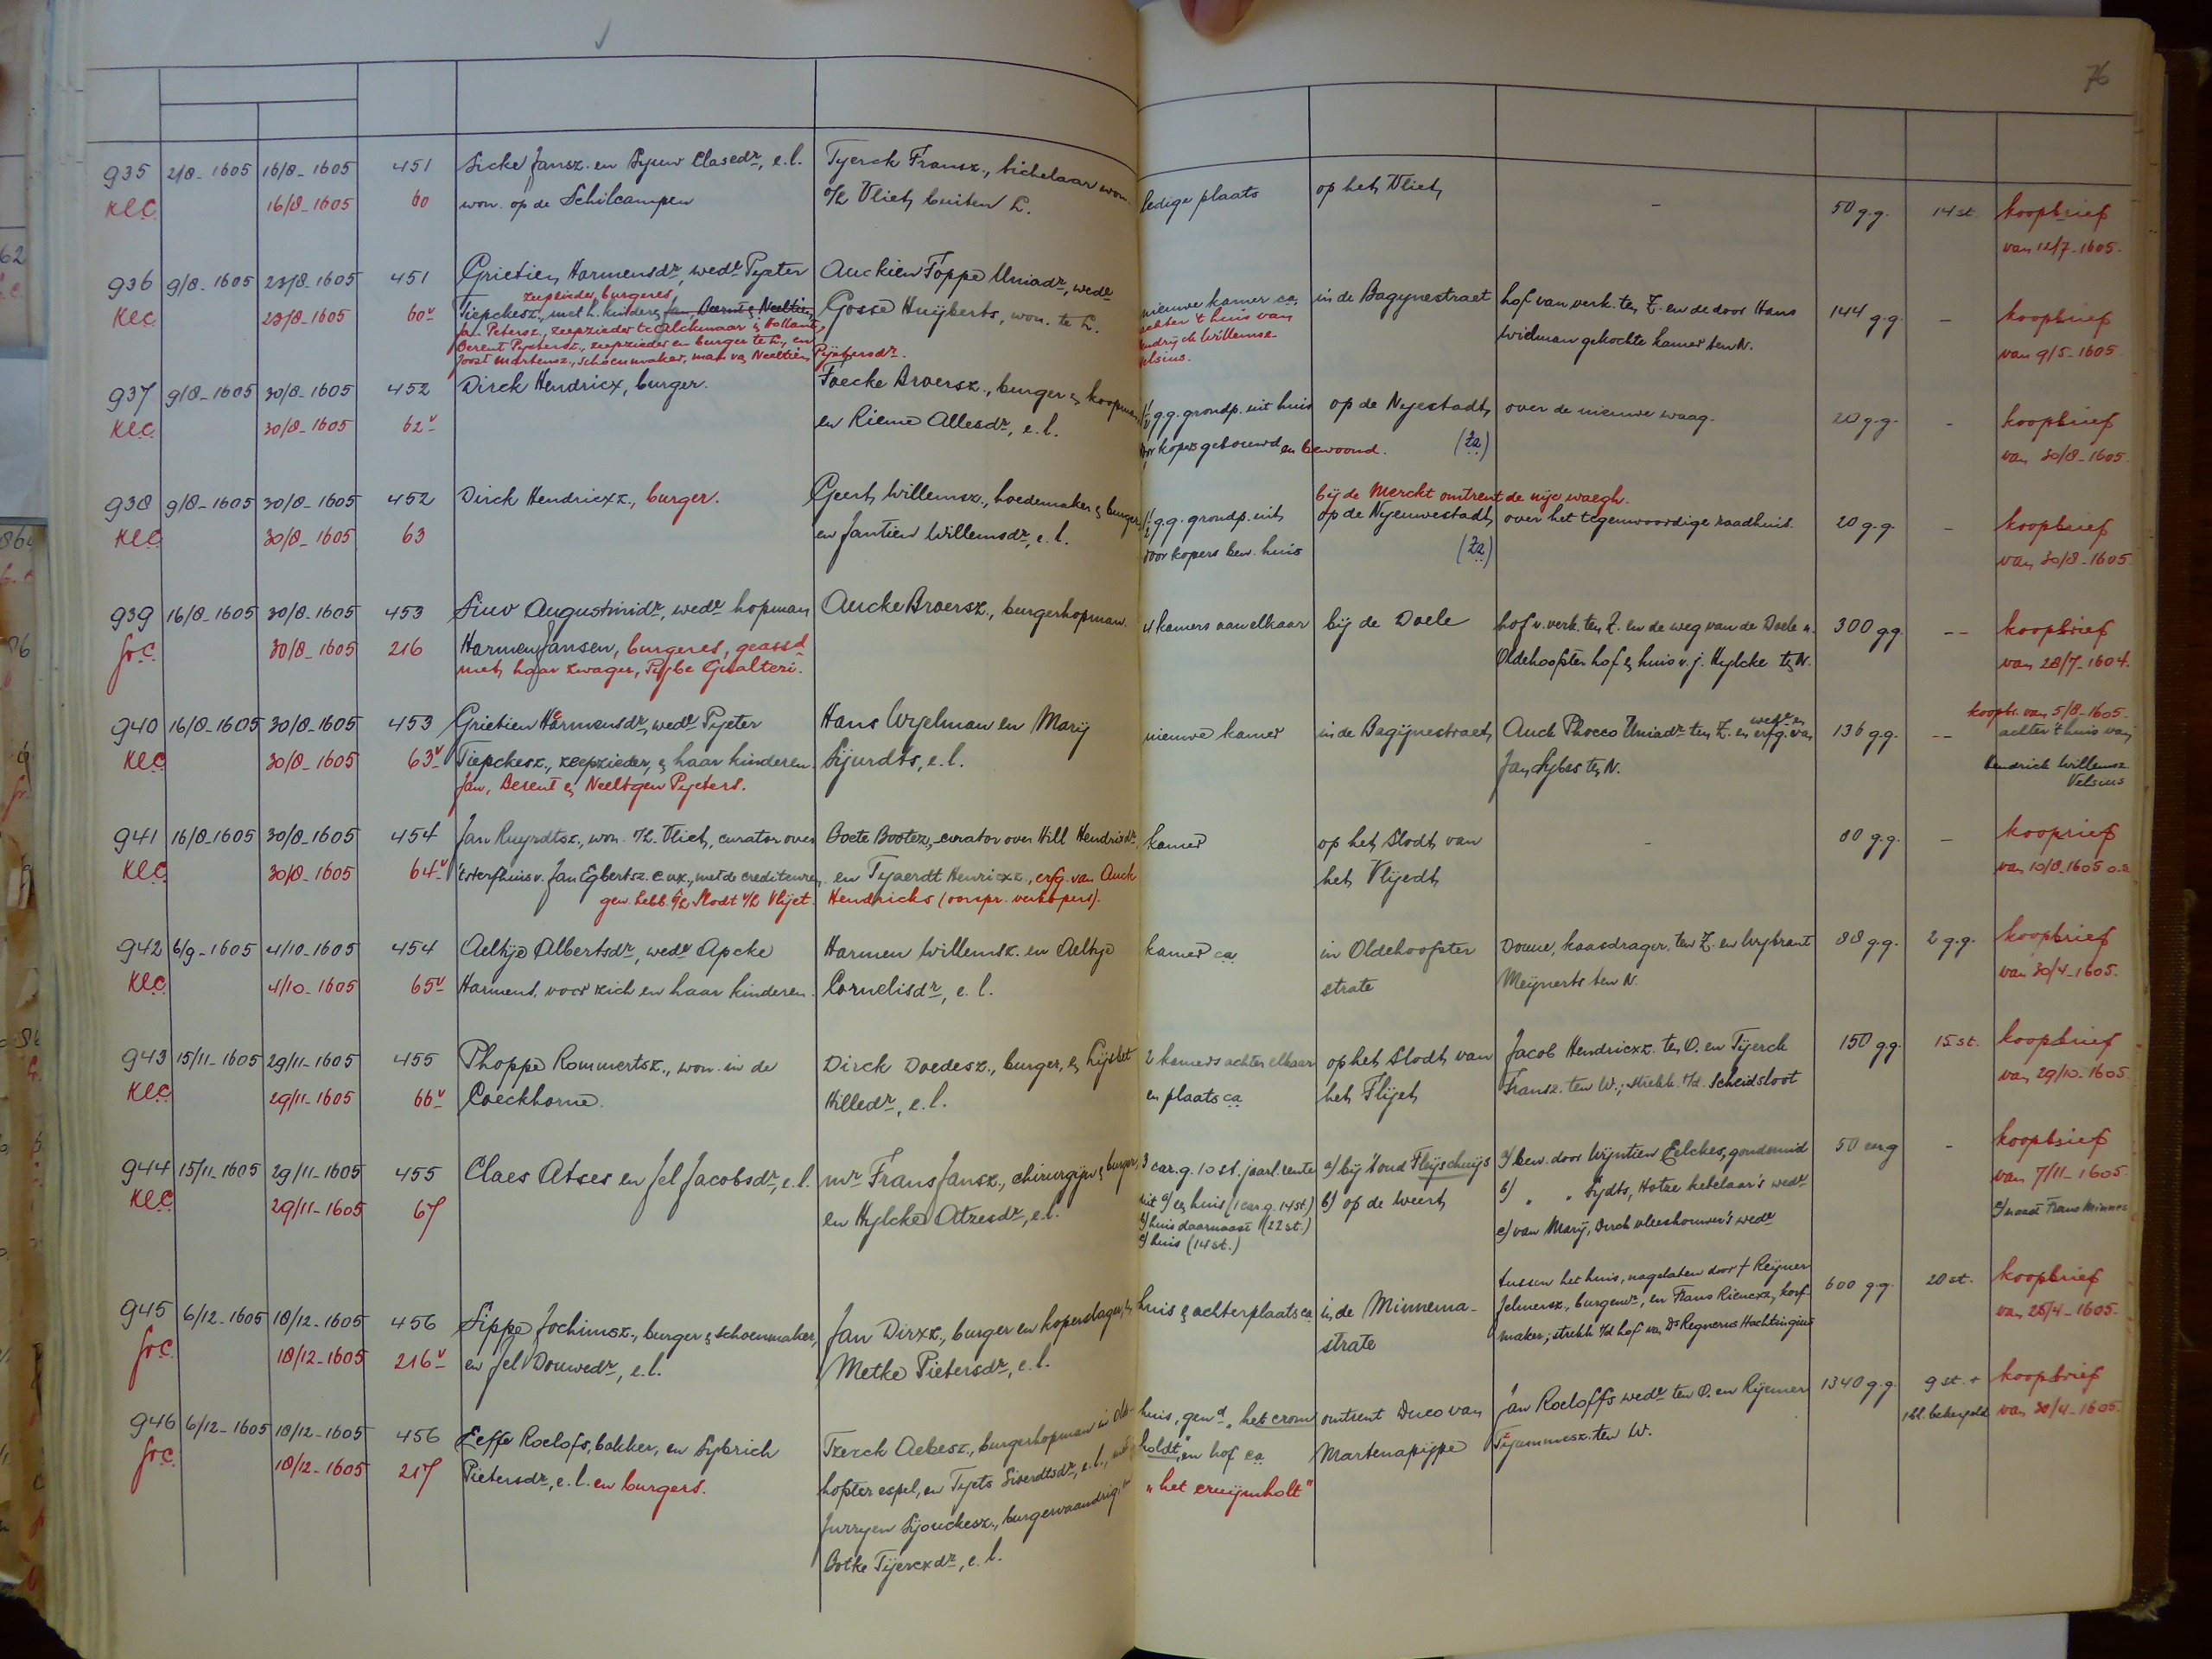 76
935 2/8-1605 16/8-1605 451 Sicke Jansz. en Syuw Clasedr, e.l. Tyerck Fransz., tichelaar won. ledige plaats op het Vliet - 50 g.g. 14 st. koopbrief
KLC 16/8-1605 60 won. op de Schilcampen o/h Vliet buiten L. van 12/7-1605.
936 9/8-1605 23/8-1605 451 Grietien Harmensdr, wedr Pyeter Auckien Foppe Uniadr, wedr nieuwe kamer ca. in de Bagynestraet hof van verk. ten Z. en de door Hans 144 g.g. - koopbrief
zeepzieder, burgeres,
KLC 23/8-1605 60v Tiepckesz., met h. kinderen Jan, Berent & Neeltien, Gosse Huijberts, won. te L. achter 't huis van Widman gekochte kamer ten N. van 9/5-1605.
Jan Petersz., zeepzieder te Alckmaar in Hollant, endrijck Willemsz.
Berent Pyetersz., zeepzieder en burger te L., en elsius.
Joost Martensz., schoenmaker, man van Neeltien Pyetersdr.
937 9/8-1605 30/8-1605 452 Dirck Hendricx, burger. Foecke Broersz., burger & koopman, g.g. grondp. uit huis op de Nyestadt over de nieuwe waag. 20 g.g. - koopbrief
KLC 30/8-1605 62v en Rieme Allesdr, e.l. door kopers gebouwd en bewoond. (Zz) van 30/8-1605.
bij de Merckt omtrent de nije waegh.
938 9/8-1605 30/8-1605 452 Dirck Hendricxz., burger. Geert Willemsz., hoedemaker & burger, g.g. grondp. uit op de Nyeuwestadt over het tegenwoordige raadhuis. 20 g.g. - koopbrief
KLC 30/8-1605 63 en Jantien Willemsdr, e.l. door kopers bew. huis (Zz) van 30/8-1605.
939 16/8-1605 30/8-1605 453 Siuw Augustinidr, wedr hopman Aucke Broersz., burgerhopman. 4 kamers aan elkaar bij de Doele hof v. verk. ten Z. en de weg van de Doele n. 300 g.g. -- koopbrief
GrC 30/8-1605 216 Harmen Jansen, burgeres, geassd Oldehoofster hof & huis v. j. Hylcke ten N. van 28/7-1604.
met haar zwager, Pybe Gualteri.
940 16/8-1605 30/8-1605 453 Grietien Harmensdr, wedr Pyeter Hans Wyelman en Marij nieuwe kamer in de Bagijnestraet Auck Phocco Uniadr ten Z. en wedr en erfg. van 136 g.g. -- koopbr. van 5/8-1605.
KLC 30/8-1605 63v Tiepckesz., zeepzieder, & haar kinderen Sijurdts, e.l. Jan Sybes ten N. achter 't huis van
Jan, Berent en Neeltgen Pyeters. Hendrick Willemsz. Velsius
941 16/8-1605 30/8-1605 454 Jan Ruyrdtsz., won. o/h. Vliet, curator over Boete Bootez, curator over Hill Hendricxdr, kamer op het Slodt van - 80 g.g. - kooprief
KLC 30/8-1605 64v 't sterfhuis v. Jan Egbertsz. c.ux., met de crediteuren en Tyaerdt Henricxz., erfg. van Auck het Vlijedt van 10/8-1605 o.s.
gew. hebb. o/h Slodt v/h Vlijet. Hendricks (oorspr. verkopers).
942 6/9-1605 4/10-1605 454 Aeltije Albertsdr, wedr Apcke Harmen Willemsz. en Aeltje kamer ca in Oldehoofster Douwe, kaasdrager, ten Z. en Wybrant 88 g.g. 2 g.g. koopbrief
KLC 4/10-1605 65v Harmens, voor zich en haar kinderen. Cornelisdr, e.l. strate Meijnerts ten N. van 30/4-1605.
943 15/11-1605 29/11-1605 455 Phoppe Rommertsz., won. in de Dirck Doedesz., burger, & Lijsbet 2 kamers achter elkaar op het Slodt van Jacob Hendricxz. ten O. en Tijerck 150 g.g. 15 st. koopbrief
KLC 29/11-1605 66v Coeckhorne. Hilledr, e.l. en plaats ca het Flijet Fransz. ten W.; strekk. t/d. Scheidsloot van 29/10-1605.
944 15/11-1605 29/11-1605 455 Claes Atses en Jel Jacobsdr, e.l. mr Frans Jansz., chirurgijn & burger, 3 car.g. 10 st. jaarl. rente a) bij 't oud Flijschuijs a) bew. door Wijntien Eelckes, goudsmid 50 en.g - koopbrief
KLC 29/11-1605 67 en Hylcke Atzesdr, e.l. uit a) en huis (1 car.g. 14 st.) b) op de Weert b) " " Sydts, Hotze ketelaar's wedr van 7/11-1605.
b) huis daarnaast (22 st.) c) van Marij, Dirck vleeshouwer's wedr c) naast Frans Minnes
c) huis (14 st.)
945 6/12-1605 18/12-1605 456 Sippe Jochimsz., burger & schoenmaker, Jan Dirxz., burger en koperslager, & huis & achterplaats ca. in de Minnema- tussen het huis, nagelaten door † Reijner 600 g.g. 20 st. koopbrief
GrC 18/12-1605 216v en Jel Douwedr, e.l. Metke Pietersdr, e.l. strate Jelmersz., burgemr, en Frans Rienexz, korf- van 28/4-1605.
maker; strekk. t/d hof van Ds Regnerus Hachtingius
946 6/12-1605 18/12-1605 456 Eeffe Roelofs, bakker, en Sybrich Tzerck Aebesz., burgerhopman in Olde- huis, gend "het crom omtrent Duco van Jan Roeloffs wedr ten O. en Rijemer 1340 g.g. 9 st. + koopbrief
GrC 18/12-1605 217 Pietersdr, e.l. en burgers. hofster espel, en Tyets Sioerdtsdr, e.l., en holdt", en hof ca Martenapijpe Tijammesz. ten W. 1 bl. bekengeld van 30/4-1605.
Jurryen Sijouckesz., burgervaandrig, "het cruijmholt"
Botke Tijercxdr, e.l.